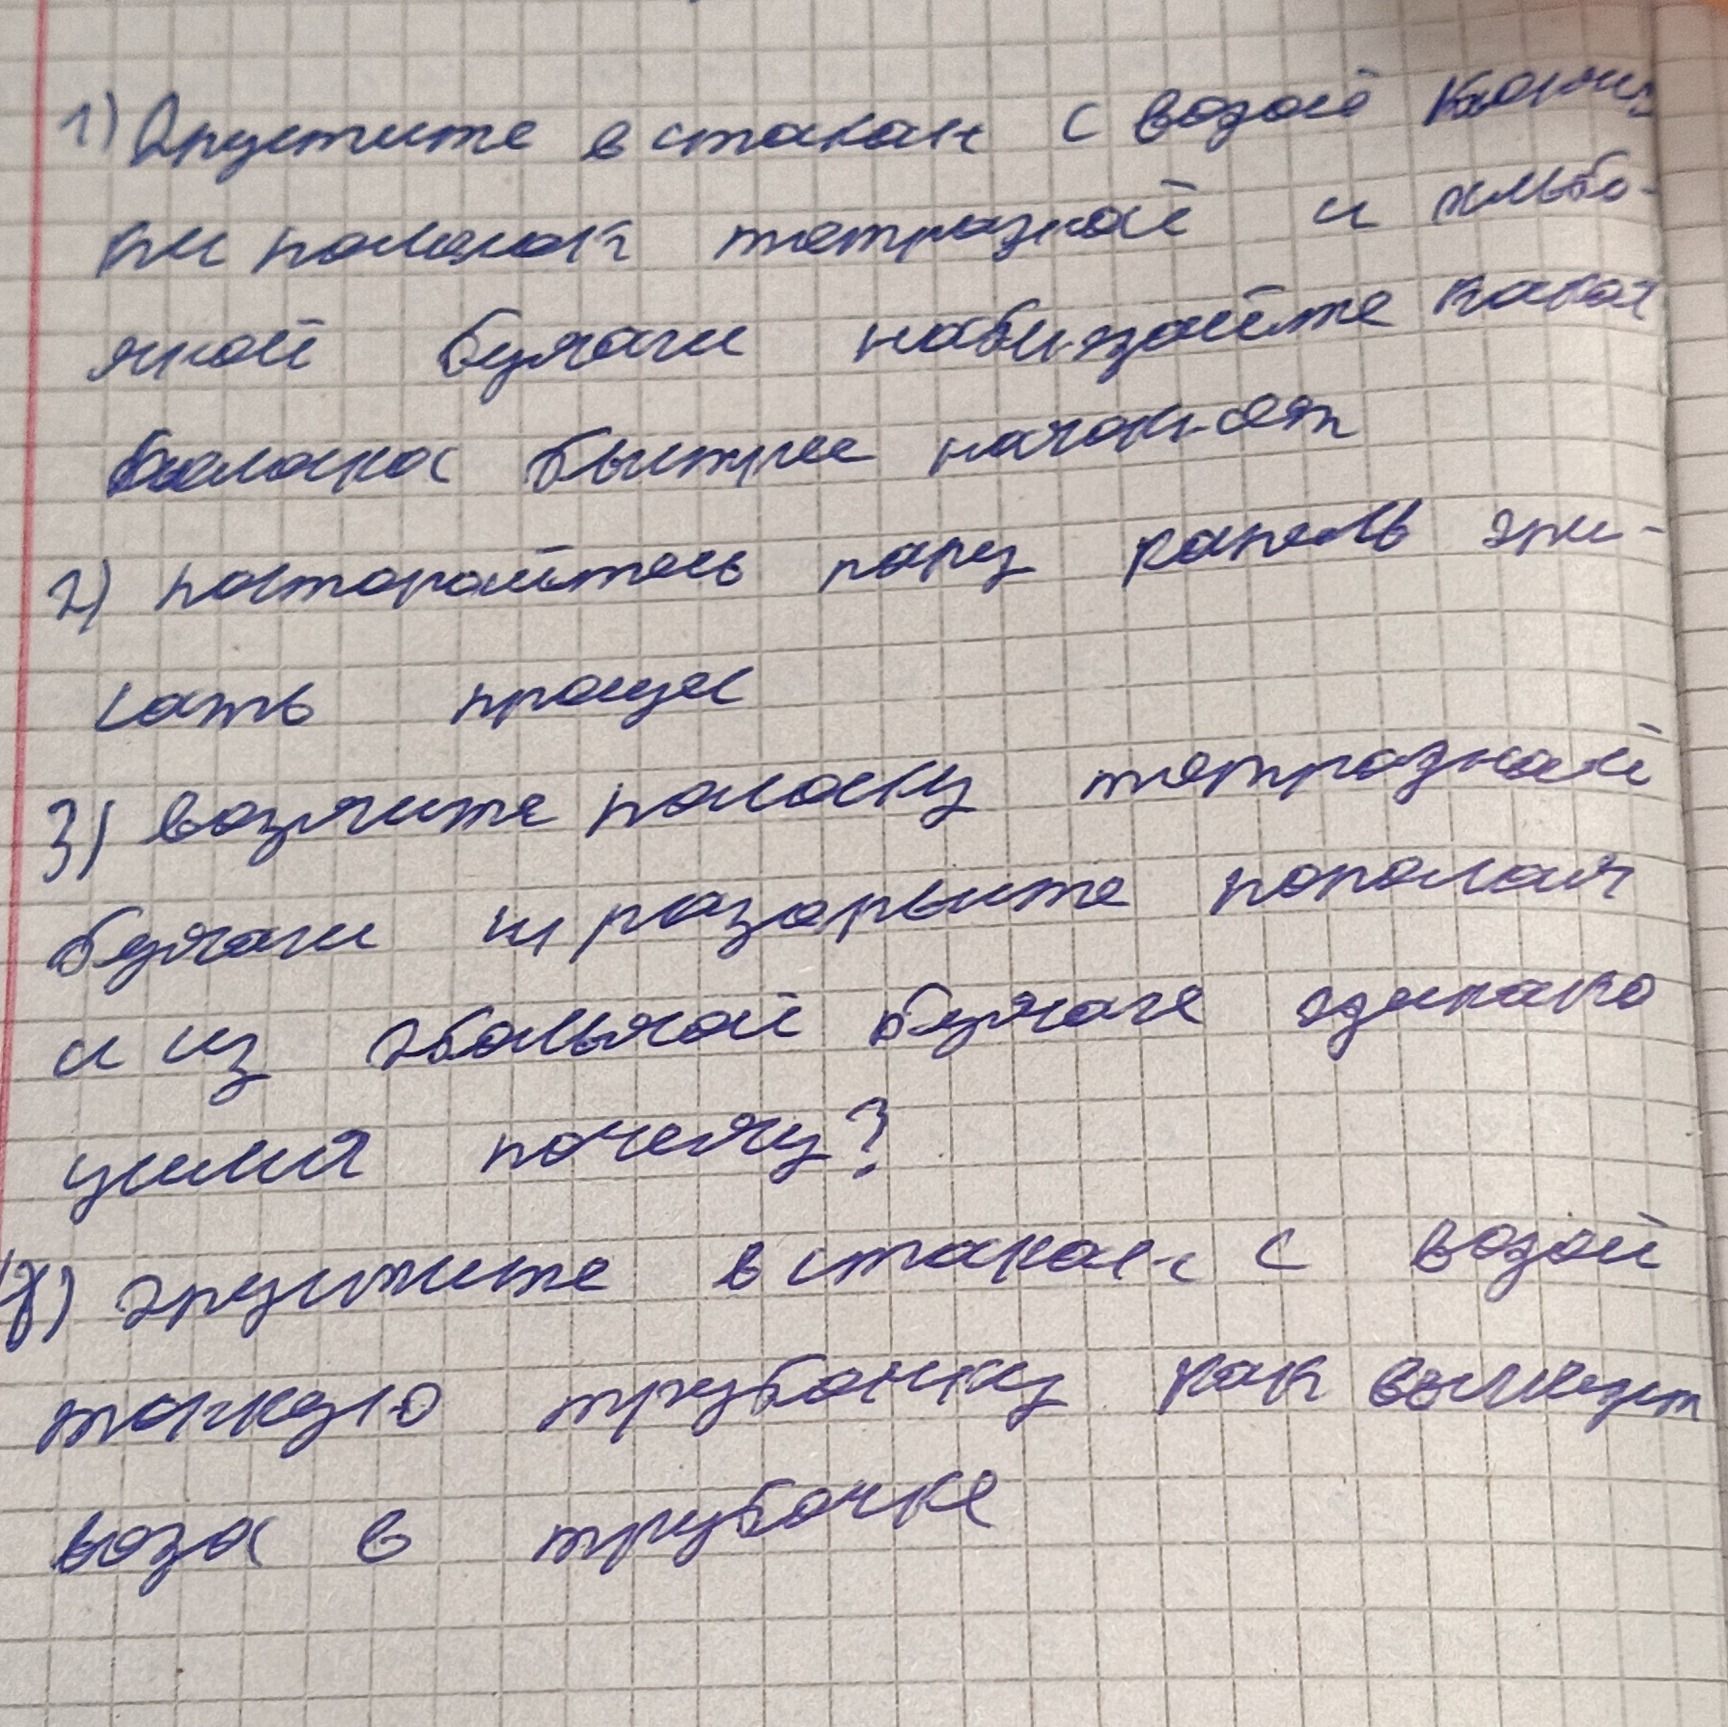 1) Опустите в стакан с водой кончи-
ки полосок тетрадной и альбо-
мной бумаги наблюдайте какая
полоска быстрее намокнет
2) постарайтесь пару капель опи-
сать процес
3) возмите полоску тетрадной
бумаги и разорвите пополам
и из альбомной бумаге одинаково
усилия почему?
4) опустите в стакан с водой
тонкую трубочку как выглядит
вода в трубочке